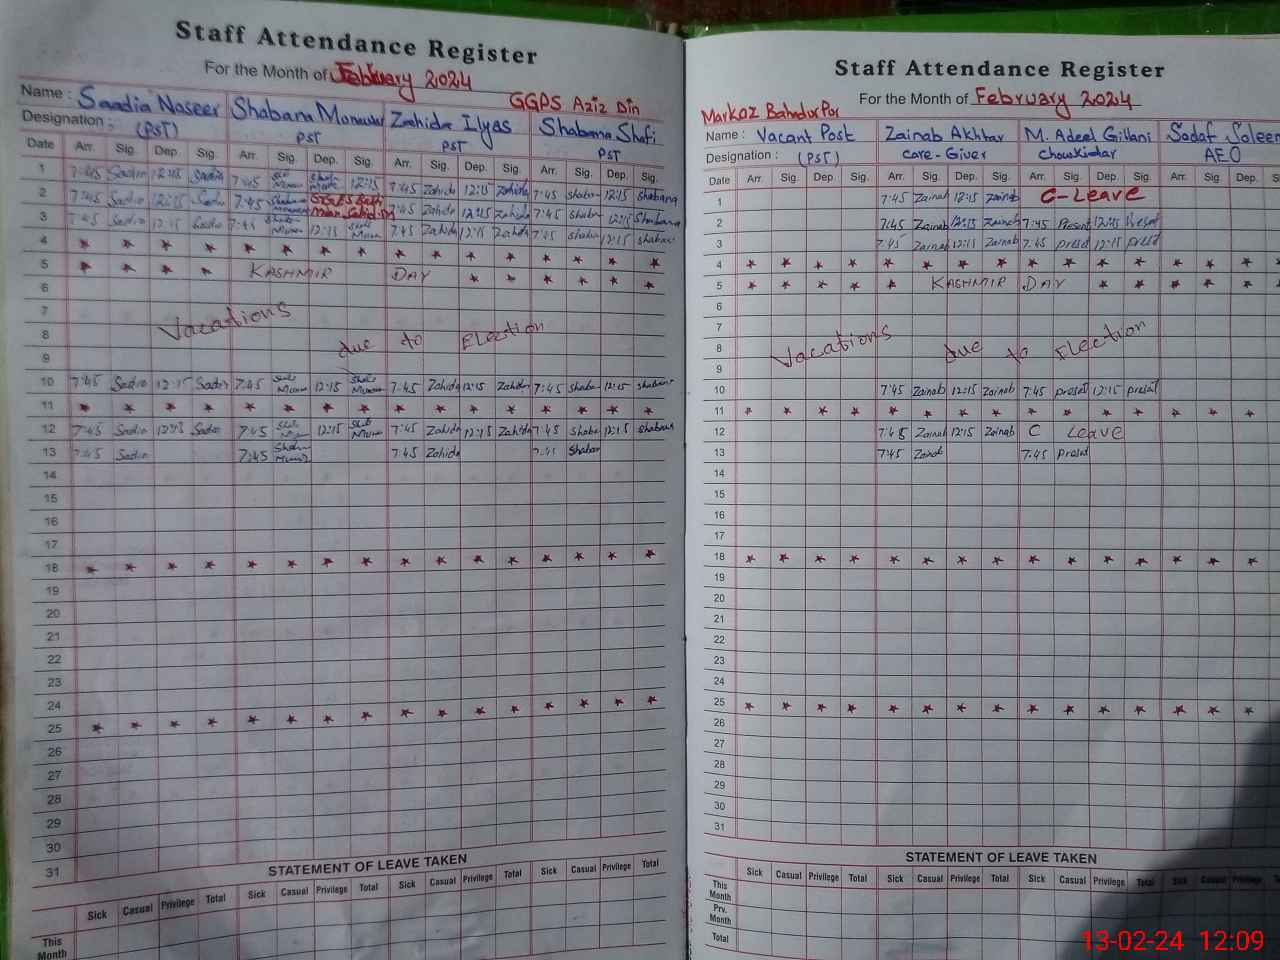 Staff Attendance Register
For the Month of February 2024
GGPS Aziz Din
Name : Saadia Naseer Shabana Monawar Zahida Ilyas Shabana Shafi
Designation : (PST) PST PST PST
Date Arr. Sig. Dep. Sig. Arr. Sig. Dep. Sig. Arr. Sig. Dep. Sig. Arr. Sig. Dep. Sig.
1 7:45 Sadia 12:15 Sadia 7:45 12:15 7:45 Zahida 12:15 Zahida 7:45 Shaba 12:15 Shabana
2 7:45 Sadia 12:15 Sadia 7:45 7:45 Zahida 12:15 Zahida 7:45 Shaba 12:15 Shabana
3 7:45 Sadia 12:15 Sadia 7:45 12:15 7:45 Zahida 12:15 Zahida 7:45 Shaba 12:15 Shabana
4 * * * * * * * * * * * * * * * *
5 * * * * KASHMIR DAY * * * * * *
6
7 Vacations
8 due to Election
9
10 7:45 Sadia 12:15 Sadia 7:45 12:15 7:45 Zahida 12:15 Zahida 7:45 Shaba 12:15 Shabana
11 * * * * * * * * * * * * * * * *
12 7:45 Sadia 12:15 Sadia 7:45 12:15 7:45 Zahida 12:15 Zahida 7:45 Shaba 12:15 Shabana
13 7:45 Sadia 7:45 7:45 Zahida 7:45 Shaba
14
15
16
17
18 * * * * * * * * * * * * * * * *
19
20
21
22
23
24
25 * * * * * * * * * * * * * * * *
26
27
28
29
30
31
STATEMENT OF LEAVE TAKEN
Sick Casual Privilege Total Sick Casual Privilege Total Sick Casual Privilege Total Sick Casual Privilege Total
This Month
Staff Attendance Register
For the Month of February 2024
Markaz Bahadur Por
Name : Vacant Post Zainab Akhtar M. Adeel Gillani Sadaf Saleem
Designation : (PST) care-Giver chowkidar AEO
Date Arr. Sig. Dep. Sig. Arr. Sig. Dep. Sig. Arr. Sig. Dep. Sig. Arr. Sig. Dep.
1 7:45 Zainab 12:15 Zainab C-Leave
2 7:45 Zainab 12:15 Zainab 7:45 Present 12:45 Present
3 7:45 Zainab 12:15 Zainab 7:45 Presat 12:15 Presat
4 * * * * * * * * * * * * * * * *
5 * * * * * KASHMIR DAY * * * * * *
6
7 Vacations
8 due to Election
9
10 7:45 Zainab 12:15 Zainab 7:45 presat 12:15 presat
11 * * * * * * * * * * * * * * *
12 7:45 Zainab 12:15 Zainab C Leave
13 7:45 Zainab 7:45 Presat
14
15
16
17
18 * * * * * * * * * * * * * * *
19
20
21
22
23
24
25 * * * * * * * * * * * * * * *
26
27
28
29
30
31
STATEMENT OF LEAVE TAKEN
Sick Casual Privilege Total Sick Casual Privilege Total Sick Casual Privilege Total Sick Casual Privilege
This Month
Prv. Month
Total
13-02-24 12:09